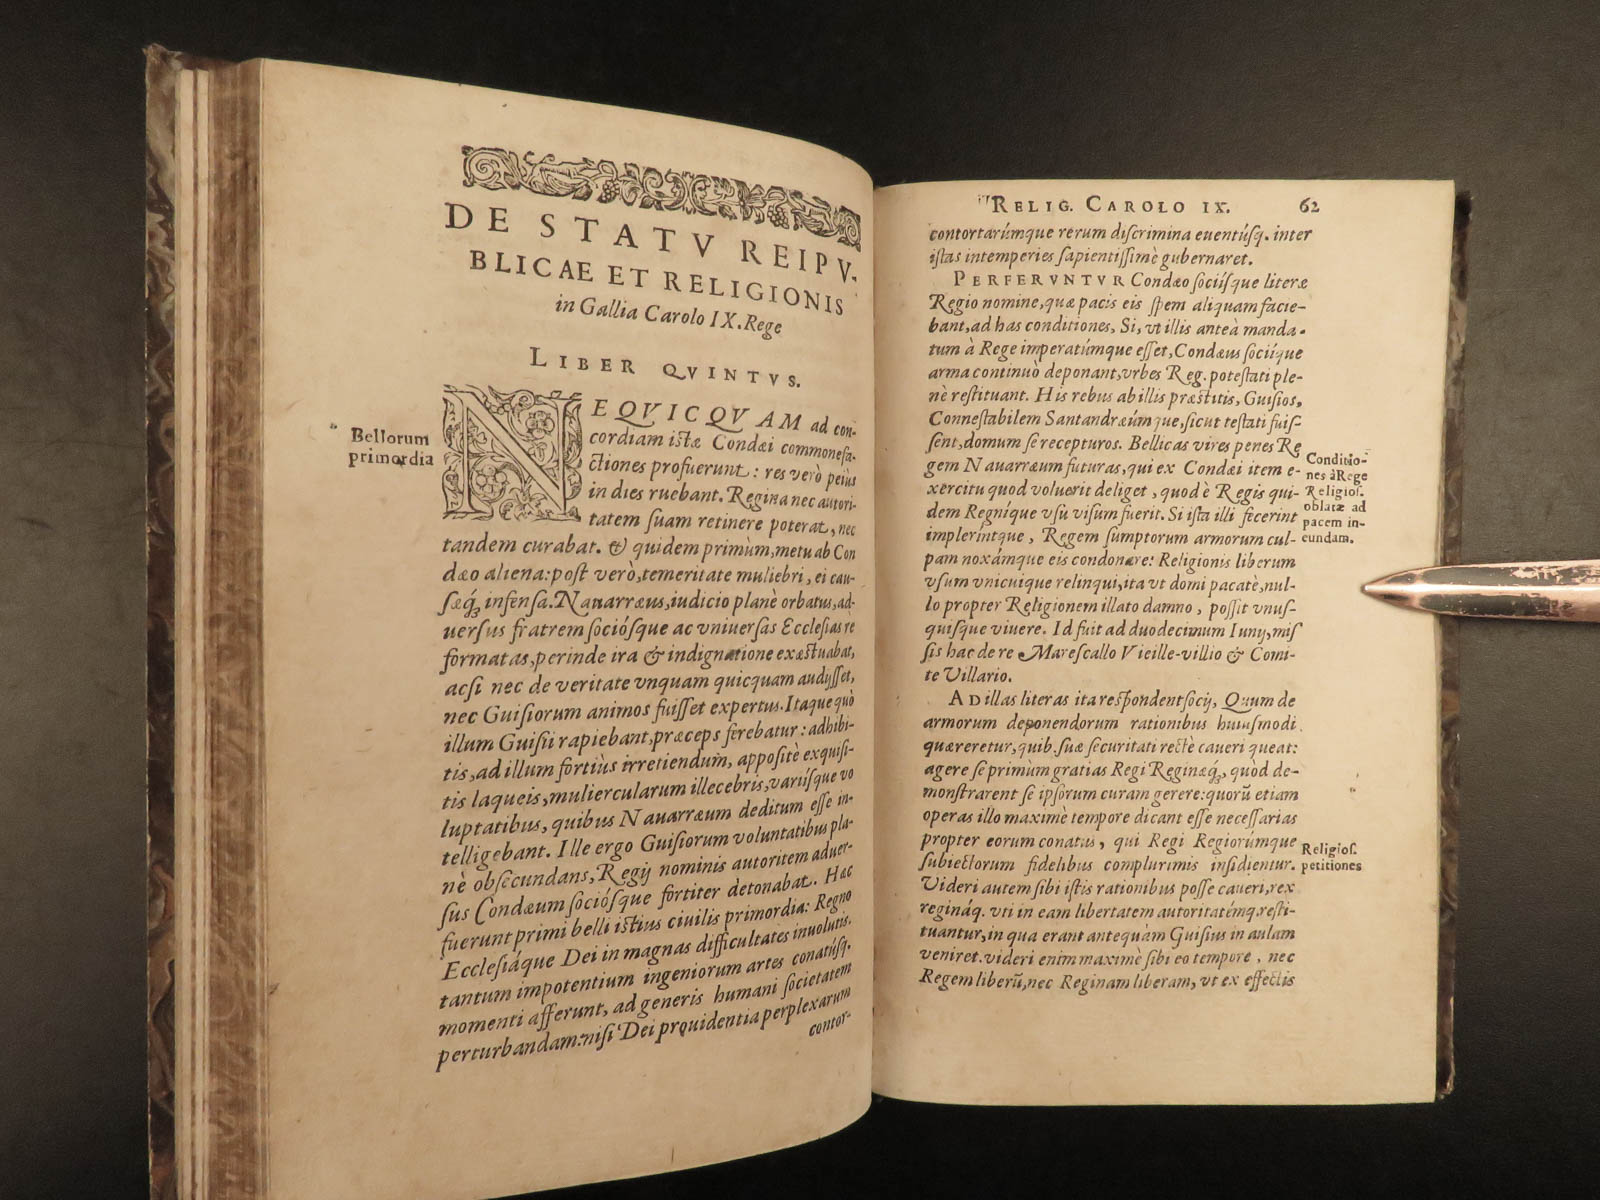 DE STATV REIPV-
BLICAE ET RELIGIONIS
in Gallia Carolo IX. Rege
LIBER QVINTVS.
Bellorum
primordia
NEQVICQVAM ad con-
cordiam istæ Condæi commonefa-
ctiones profuerunt: res verò peius
in dies ruebant. Regina nec autori-
tatem suam retinere poterat, nec
tandem curabat. & quidem primùm, metu ab Con
dæo aliena: post verò, temeritate muliebri, ei cau-
sæq́ infensa. Nauarræus, iudicio planè orbatus, ad-
uersus fratrem sociósque ac vniuersas Ecclesias re
formatas, perinde ira & indignatione exæstuabat,
acsi nec de veritate vnquam quicquam audysset,
nec Guisiorum animos fuisset expertus. Itaque quò
illum Guisii rapiebant, præceps ferebatur: adhibi-
tis, ad illum fortiùs irretiendum, appositè exquisi-
tis laqueis, muliercularum illecebris, variísque vo
luptatibus, quibus Nauarræum deditum esse in-
telligebant. Ille ergo Guisiorum voluntatibus pla-
nè obsecundans, Regij nominis autoritem aduer-
sus Condæum sociósque fortiter detonabat. Hac
fuerunt primi belli istius ciuilis primordia: Regno
Ecclesiáque Dei in magnas difficultates inuolutis.
tantum impotentium ingeniorum artes conatúsq.
momenti afferunt, ad generis humani societatem
perturbandam: nisi Dei prouidentia perplexarum
contor-
RELIG. CAROLO IX. 62
contortarúmque rerum discrimina euentúsq. inter
istas intemperies sapientissimè gubernaret.
PERFERVNTVR Condæo sociísque literæ
Regio nomine, quæ pacis eis spem aliquam facie-
bant, ad has conditiones, Si, vt illis anteà manda-
tum à Rege imperatúmque esset, Condæus sociíque
arma continuò deponant, vrbes Reg. potestati ple-
nè restituant. His rebus ab illis præstitis, Guisios,
Connestabilem Santandræúmque, sicut testati fuis-
sent, domum se recepturos. Bellicas vires penes Re
gem Nauarræum futuras, qui ex Condæi item e-
xercitu quod voluerit deliget, quod è Regis qui-
dem Regnique vsù visum fuerit. Si ista illi fecerint
implerintque, Regem sumptorum armorum cul-
pam noxámque eis condonare: Religionis liberum
vsum vnicuique relinqui, ita vt domi pacatè, nul-
lo propter Religionem illato damno, possit vnus-
quisque viuere. Id fuit ad duodecimum Iuny, mis
sis hac de re Marescallo Vieille-villio & Comi-
te Villario.
Conditio-
nes à Rege
Religios.
oblatæ ad
pacem in-
eundam.
AD illas literas ita respondent socij, Quum de
armorum deponendorum rationibus huiusmodi
quæreretur, quib. suæ securitati rectè caueri queat:
agere se primùm gratias Regi Reginæq́, quòd de-
monstrarent se ipsorum curam gerere: quorū etiam
operas illo maximè tempore dicant esse necessarias
propter eorum conatus, qui Regi Regiorúmque
subiectorum fidelibus complurimis insidientur.
Videri autem sibi istis rationibus posse caueri, rex
regináq. vti in eam libertatem autoritatémq. resti-
tuantur, in qua erant antequàm Guisius in aulam
veniret. videri enim maximè sibi eo tempore, nec
Regem liberū, nec Reginam liberam, vt ex effectis
Religios.
petitiones